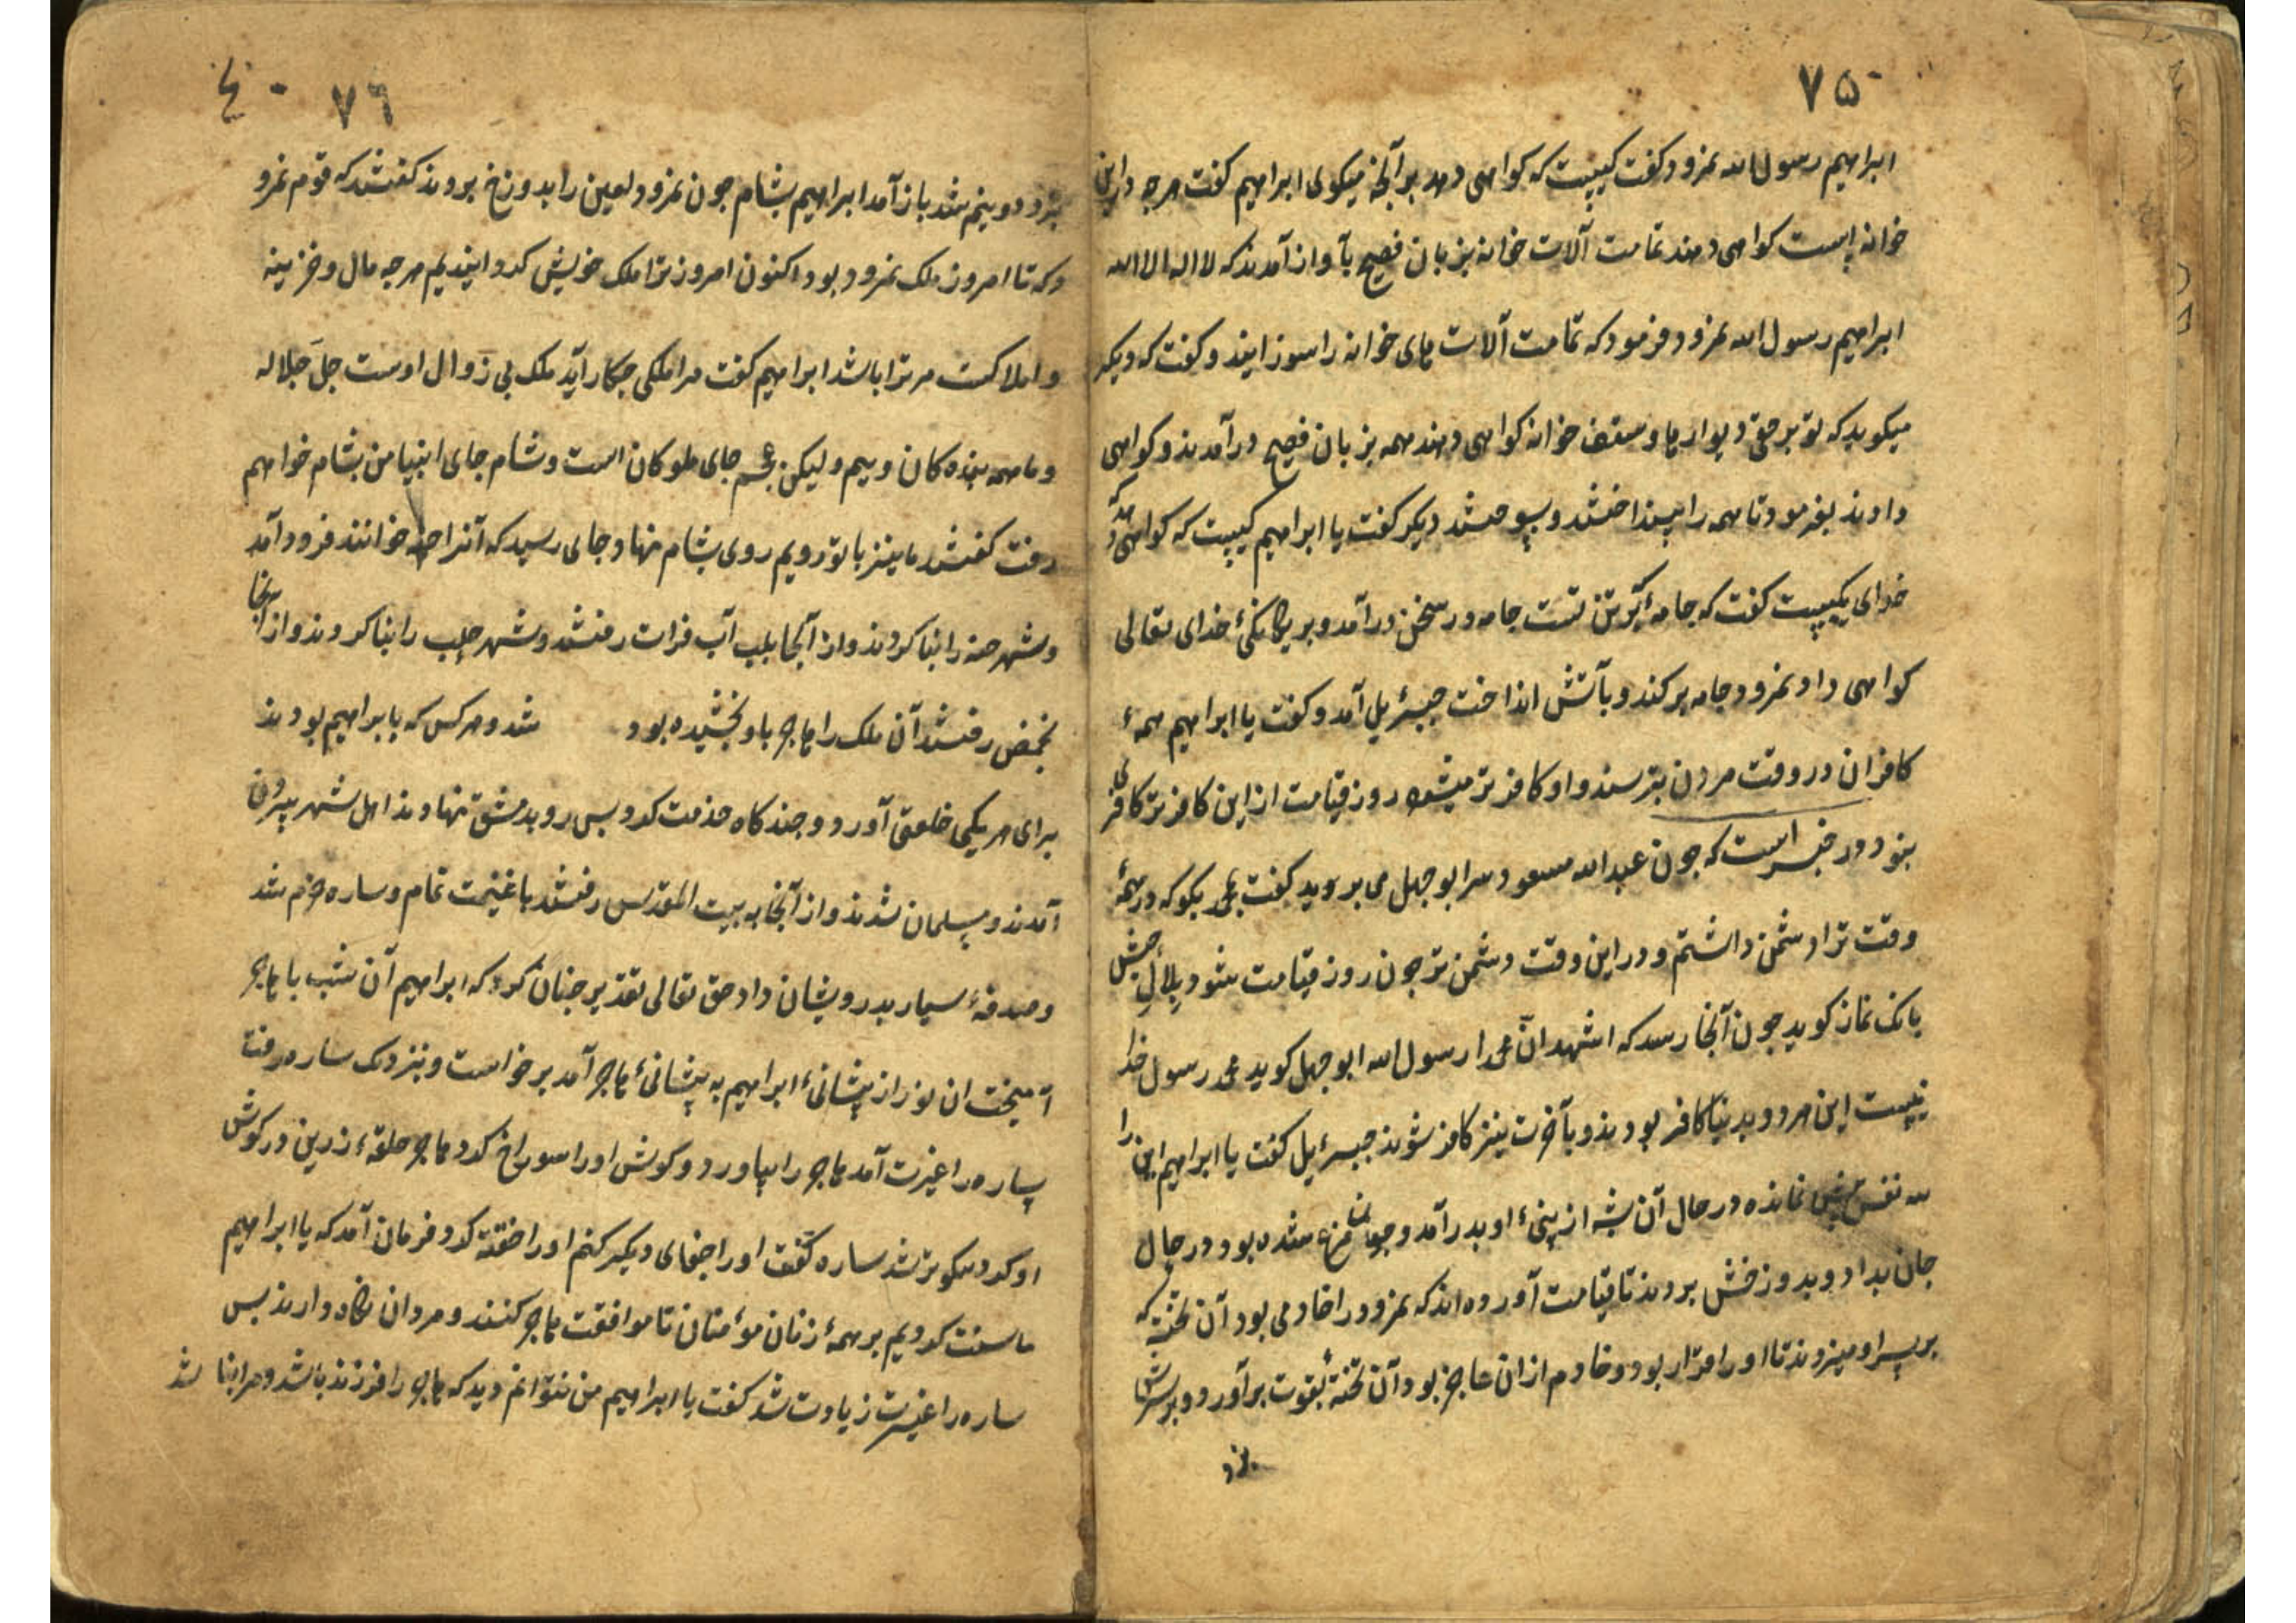 ۷۵
ابراهیم رسول الله نمرود کفت کیست که کواهی دهد بر آنچه میکوی ابراهیم کفت هرچه در این
خوانه است کواهی دهند تمامت آلات خوانه بزبان فصیح بآواز آمدند که لا اله الا الله
ابراهیم رسول الله نمرود فرمود که تمامت آلات های خوانه را سوزانیند و کفت که دیکر
میکوید که تو بر حق دیوارها و سقف خوانه کواهی دهند همه بزبان فصیح درآمدند و کواهی
دادند بفرمود تا همه را بینداختند و بسوختند دیکر کفت یا ابراهیم کیست که کواهی دهد که
خدای یکیست کفت که جامهٔ که بر تن تست جامه در سخن درآمد و بر یکانکیٔ خدای تعالی
کواهی داد نمرود جامه برکند و بآتش انداخت جبرٔیل آمد و کفت یا ابراهیم همهٔ
کافران در وقت مردن بترسند و او کافرتر میشود روز قیامت از این کافرتر کافری
بنود در خبر است که جون عبد الله مسعود سر ابوجهل می برید کفت محمد بکو که در همهٔ
وقت ترا دشمن داشتم و در این وقت دشمن تر جون روز قیامت شود بلال حبش
بانک نماز کوید جون آنجا رسد که اشهد انّ محمدا رسول الله ابوجهل کوید محمد رسول خدا
نیست این هر دو بدنیا کافر بودند و بآخرت نیز کافر شوند جبرٔیل کفت یا ابراهیم این را
سه نفس بیش نمانده در حال آن پشه از بینیٔ او بدر آمد و جون مرغ شده بود در حال
جان بداد و بدوزخش بردند تا قیامت آورده اند که نمرود را خادمی بود آن تخته که
بر سر او میزدند تا او را قرار بود و خادم از ان عاجز بود آن تختهٔ بقوت برآورد و بر سرش
بزد
۷۶
بزد و دو نیم شد باز آمد ابراهیم بشام جون نمرود لعین را بدوزخ بردند کفتند که قوم نمرو
د که تا امروز ملک نمرود بود اکنون امروز ترا ملک خویش کردانیدیم هرچه مال و خزینه
و املاکست مر ترا باشد ابراهیم کفت مرا ملکی جکار آید ملک بی زوال اوست جلّ جلاله
و ما همه بنده کان وییم و لیکن عجم جای ملوکان است و شام جای انبیا من بشام خواهم
رفت کفتند ما نیز با تو رویم روی بشام نهاد و جای رسید که آنرا حمه خوانند فرود آمد
و شهر حمه را بنا کردند و از آنجا بلب آب فرات رفتند و شهر حلب را بنا کردند و از آنجا
بحمص رفتند آن ملک را هاجر باو بخشیده بود شد و هر کس که با ابراهیم بودند
برای هر یکی خلعتی آورد و جند کاه خدمت کرد بس رو بدمشق نهادند اهل شهر بیرون
آمدند و مسلمان شدند و از آنجا به بیت المقدس رفتند با غنیمت تمام و ساره خرم شد
و صدقهٔ بسیار بدرویشان داد حق تعالی تقدیر جنان کرد که ابراهیم آن شب با هاجر
آمیخت ان نور از پیشانیٔ ابراهیم به پیشانیٔ هاجر آمد برخواست و بنزدیک ساره رفت
ساره را غیرت آمد هاجر را بیاورد و کوش او را سوراخ کرد هاجر حلقهٔ زرین در کوش
او کرد نیکوتر شد ساره کفت او را جفای دیکر کنم او را ختنه کرد فرمان آمد که یا ابراهیم
ما سنت کردیم بر همهٔ زنان موٴمنان تا موافقت هاجر کنند و مردان نکاه دارند بس
ساره را غیرت زیادت شد کفت یا ابراهیم من نتوانم دید که هاجر را فرزند باشد و مرا نباشد